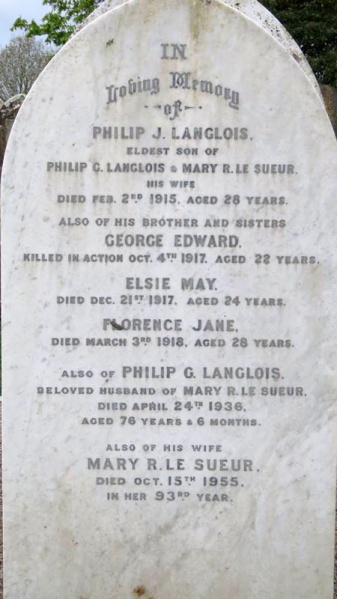 IN
Loving Memory
OF
PHILIP J. LANGLOIS.
ELDEST SON OF
PHILIP G. LANGLOIS & MARY R. LE SUEUR.
HIS WIFE
DIED FEB. 2ND 1915, AGED 28 YEARS.
ALSO OF HIS BROTHER AND SISTERS
GEORGE EDWARD.
KILLED IN ACTION OCT. 4TH 1917. AGED 22 YEARS.
ELSIE MAY.
DIED DEC. 21ST 1917. AGED 24 YEARS.
FLORENCE JANE.
DIED MARCH 3RD 1918, AGED 28 YEARS.
ALSO OF PHILIP G. LANGLOIS.
BELOVED HUSBAND OF MARY R. LE SUEUR.
DIED APRIL 24TH 1936.
AGED 76 YEARS & 6 MONTHS.
ALSO OF HIS WIFE
MARY R. LE SUEUR.
DIED OCT. 15TH 1955.
IN HER 93RD YEAR.